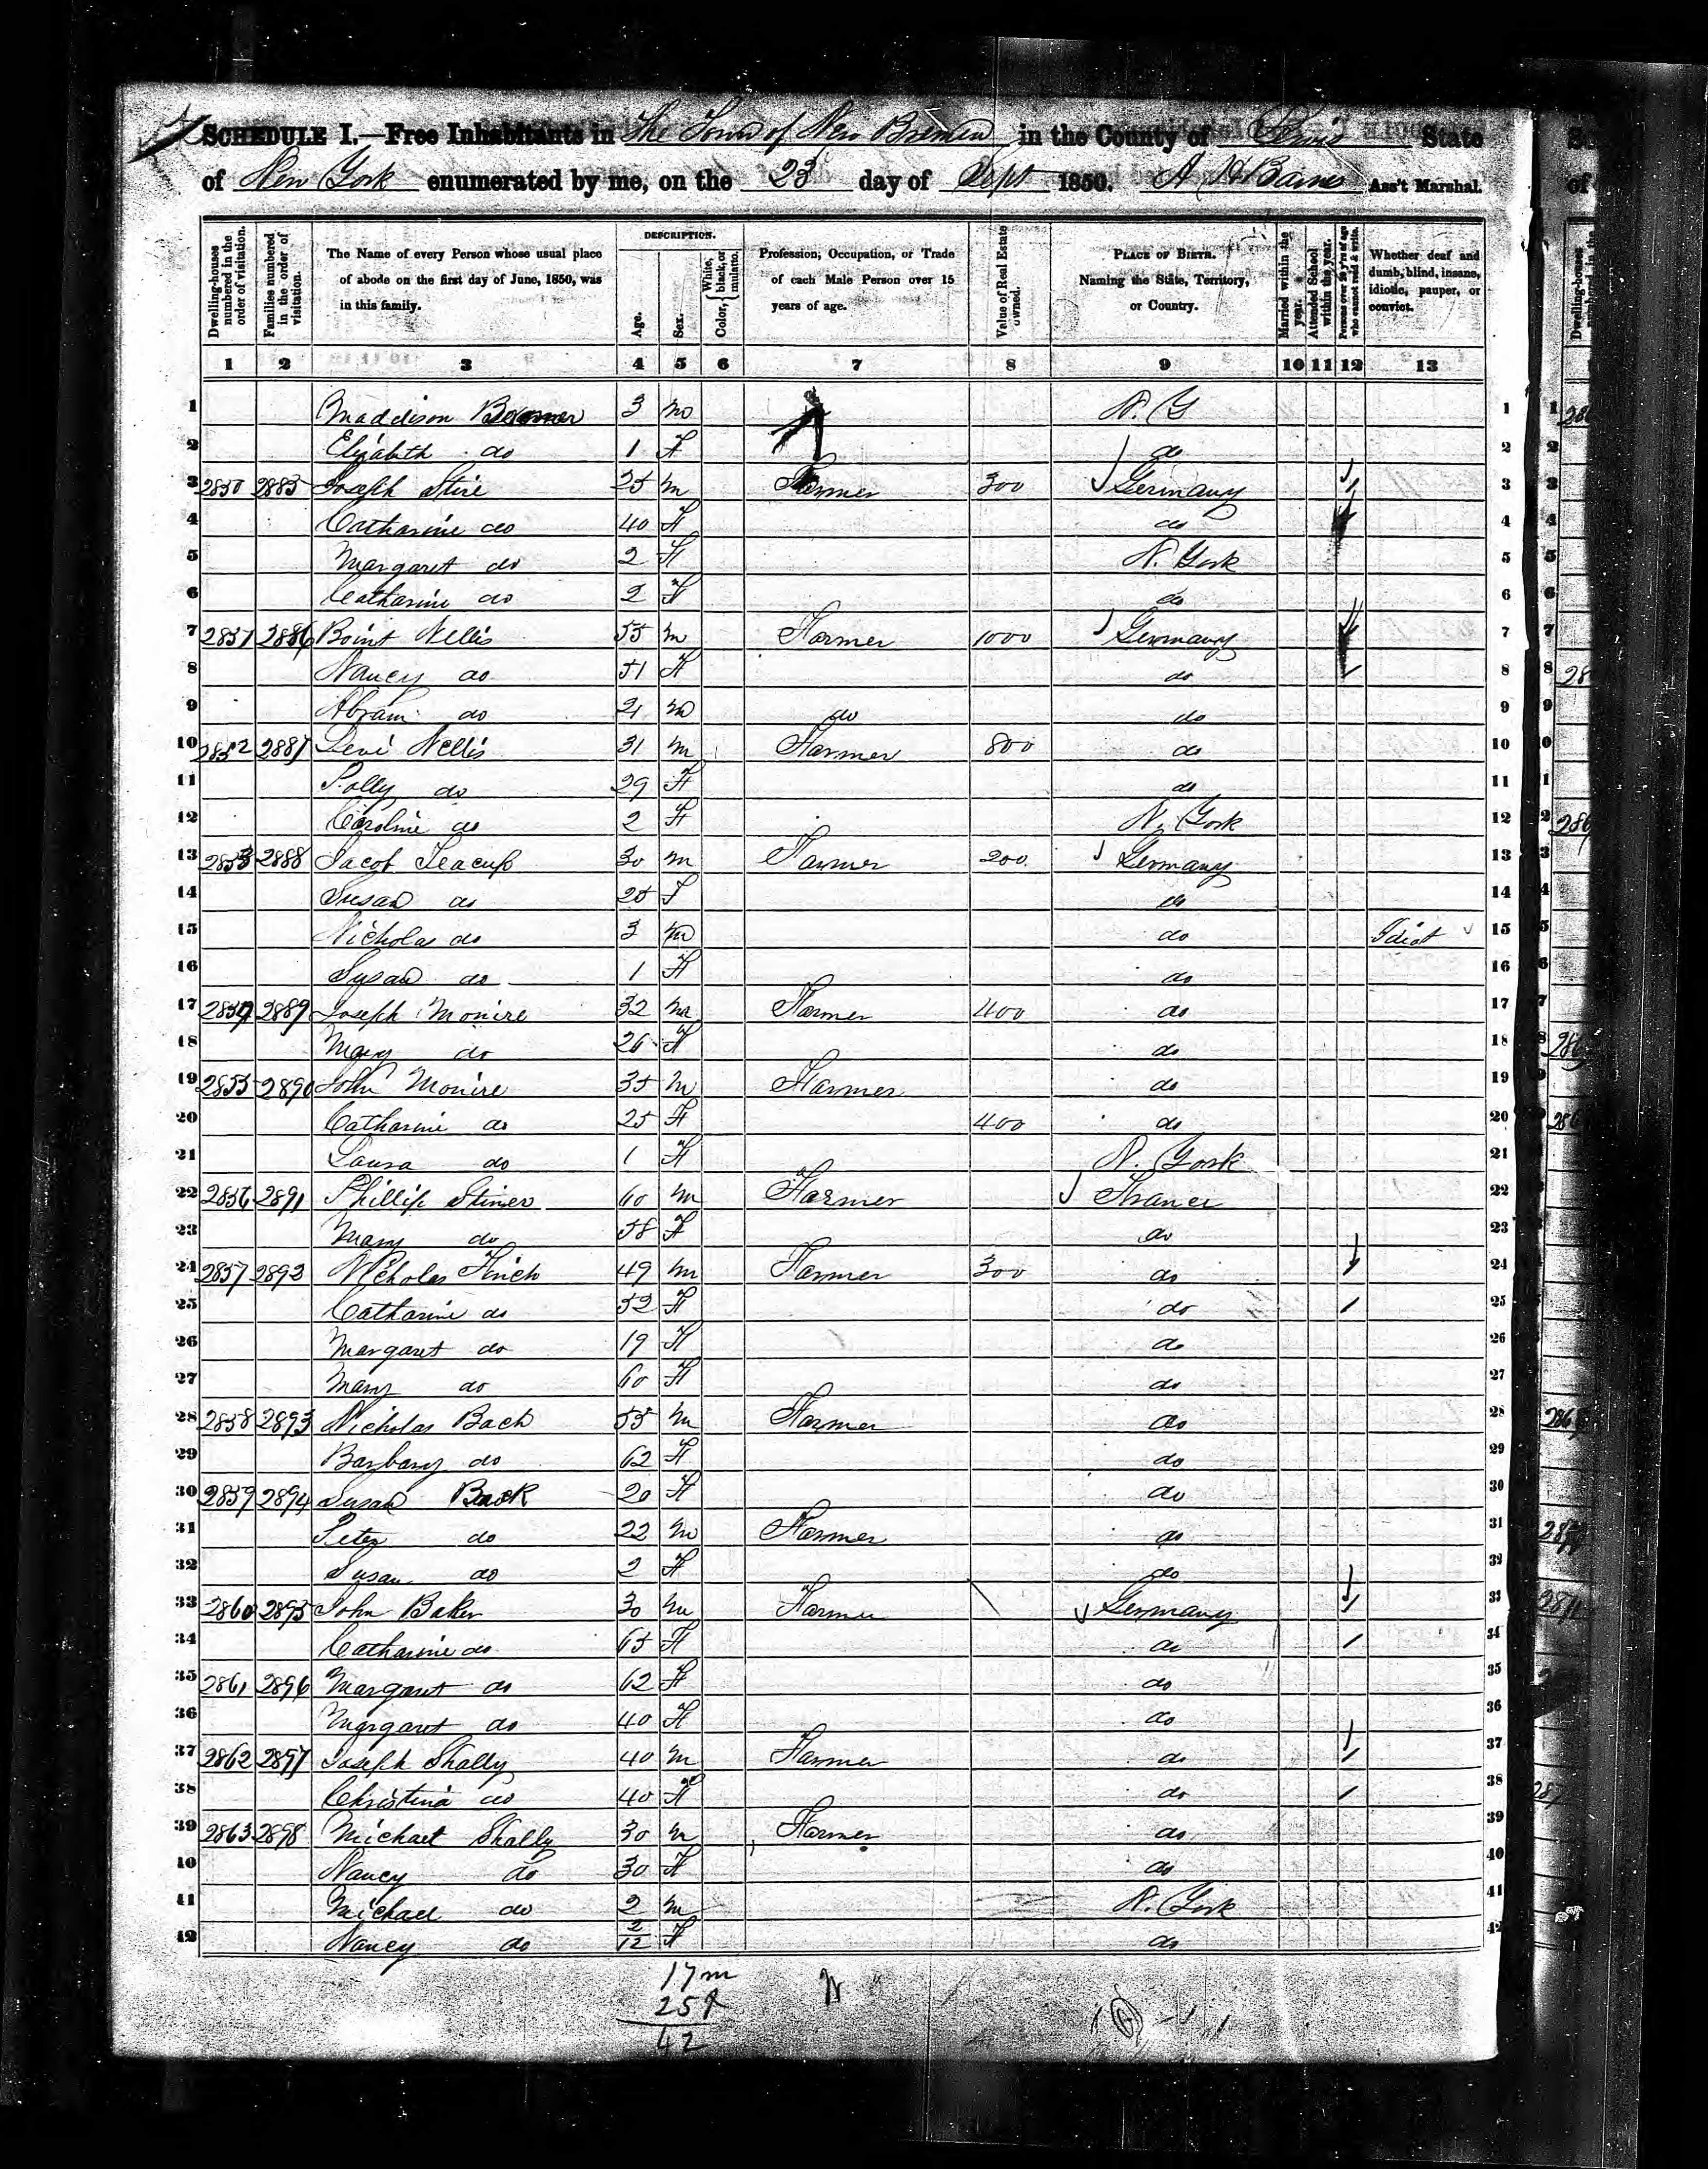 SCHEDULE I.—Free Inhabitants in The Town of New Bremen in the County of Lewis State
of New York enumerated by me, on the 23 day of Sept 1850. A H Barnes Ass't Marshal.
Dwelling-houses numbered in the order of visitation.
Families numbered in the order of visitation.
The Name of every Person whose usual place of abode on the first day of June, 1850, was in this family.
DESCRIPTION.
Age.
Sex.
Color, White, black, or mulatto.
Profession, Occupation, or Trade of each Male Person over 15 years of age.
Value of Real Estate owned.
PLACE OF BIRTH. Naming the State, Territory, or Country.
Married within the year.
Attended School within the year.
Persons over 20 y'rs of age who cannot read & write.
Whether deaf and dumb, blind, insane, idiotic, pauper, or convict.
1 2 3 4 5 6 7 8 9 10 11 12 13
1 Maddison 3 m N. Y 1
2 Elizabith do 1 F do 2
3 2850 2885 Joseph Stire 25 m Farmer 300 Germany 3
4 Catharine do 40 F do 4
5 Margaret do 2 F N. York 5
6 Catharine do 2 F do 6
7 2851 2886 Boint Nellis 55 m Farmer 1000 Germany 7
8 Nancy do 51 F do 8
9 Abram do 21 m do do 9
10 2852 2887 Levi Nellis 31 m Farmer 800 do 10
11 Polly do 29 F do 11
12 Caroline do 2 F N. York 12
13 2853 2888 Jacob Teacup 30 m Farmer 200 Germany 13
14 Susan do 25 F do 14
15 Nicholas do 3 m do Idiot 15
16 Susan do 1 F do 16
17 2854 2889 Joseph Monire 32 m Farmer 400 do 17
18 Mary do 26 F do 18
19 2855 2890 John Monire 35 m Farmer do 19
20 Catharine do 25 F 400 do 20
21 Laura do 1 F N. York 21
22 2856 2891 Phillip Stiner 60 m Farmer France 22
23 Mary do 58 F do 23
24 2857 2892 Nicholas Finch 49 m Farmer 300 do 24
25 Catharine do 52 F do 25
26 Margaret do 19 F do 26
27 Mary do 60 F do 27
28 2858 2893 Nicholas Bach 55 m Farmer do 28
29 Barbary do 62 F do 29
30 2859 2894 Susan Back 20 F do 30
31 Peter do 22 m Farmer do 31
32 Susan do 2 F do 32
33 2860 2895 John Baker 30 m Farmer Germany 33
34 Catharine do 65 F do 34
35 2861 2896 Margaret do 62 F do 35
36 Margaret do 40 F do 36
37 2862 2897 Joseph Shally 40 m Farmer do 37
38 Christina do 40 F do 38
39 2863 2898 Michael Shally 30 m Farmer do 39
40 Nancy do 30 F do 40
41 Michael do 2 m N. York 41
42 Nancy do 2/12 F do 42
17 m
25 f
42